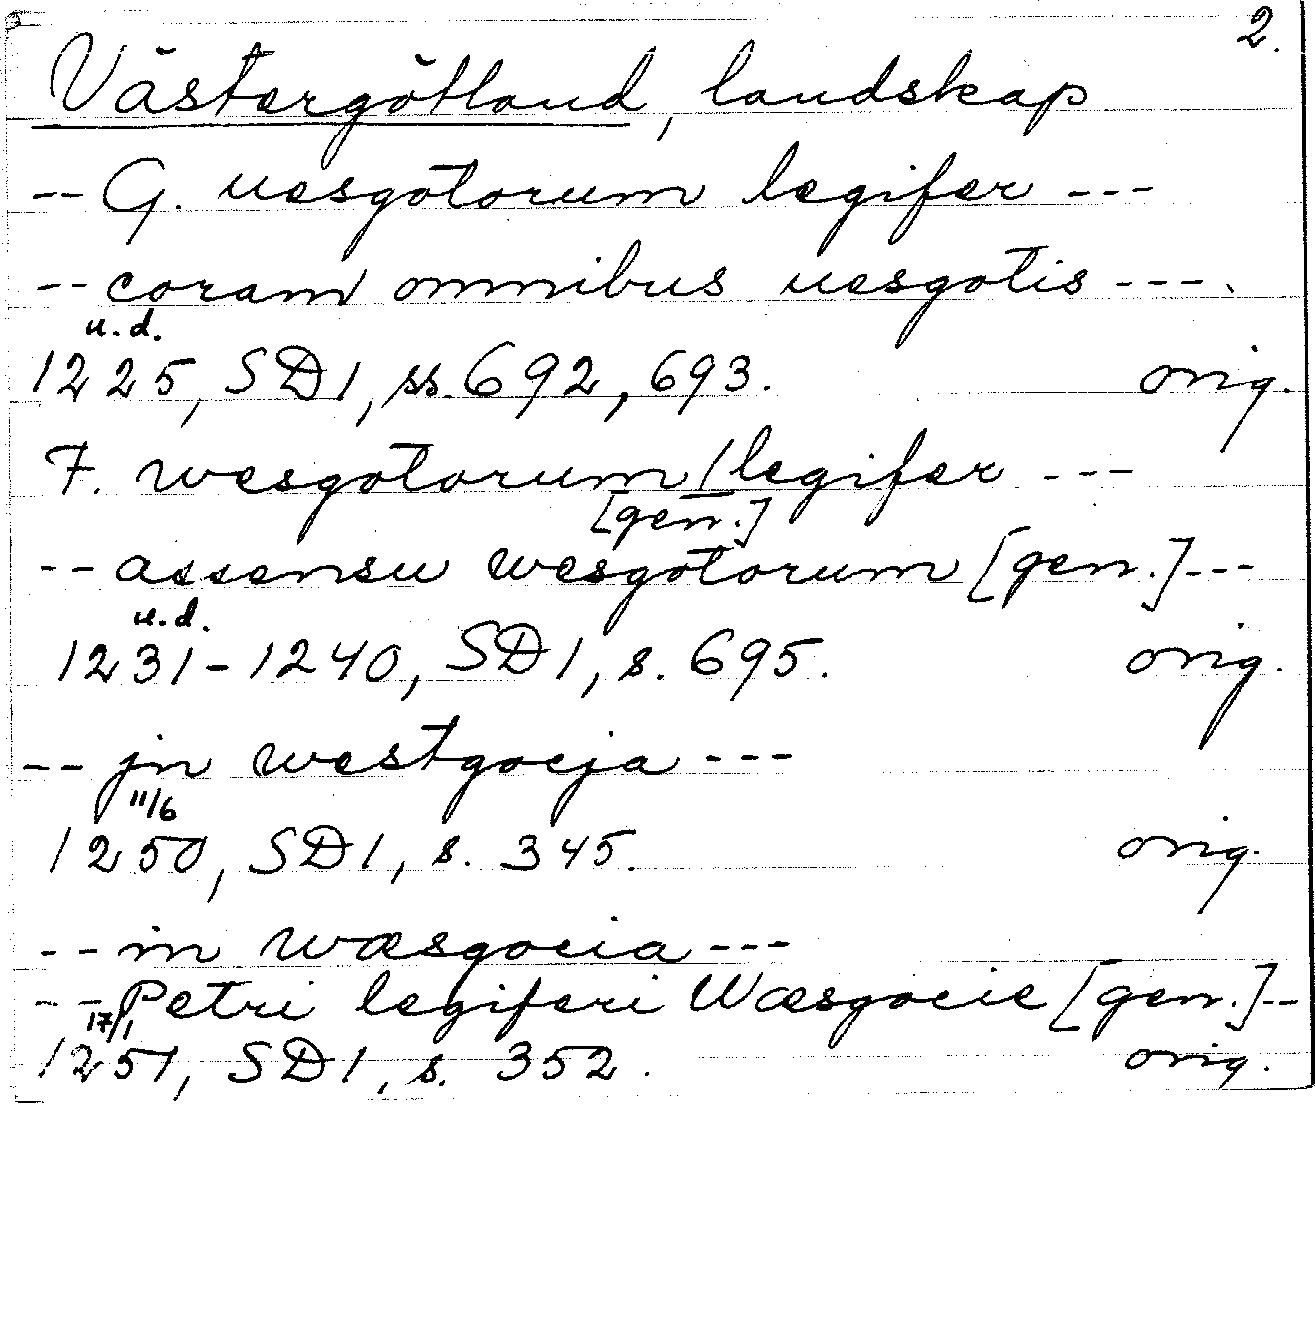 2.
Västergötland, landskap
-- G. uesgotorum legifer ---
-- coram omnibus uesgotis ---.
u.d.
1225, SD1, ss. 692, 693. orig.
F. wesgotorum / legifer ---
[gen.]
-- assensu wesgotorum [gen.] ---
u.d.
1231-1240, SD1, s. 695. orig.
-- jn westgocja ---
11/6
1250, SD1, s. 345. orig.
-- in wæsgocia ---
-- Petri legiferi Wæsgocie [gen.] --
17/1
1251, SD1, s. 352. orig.